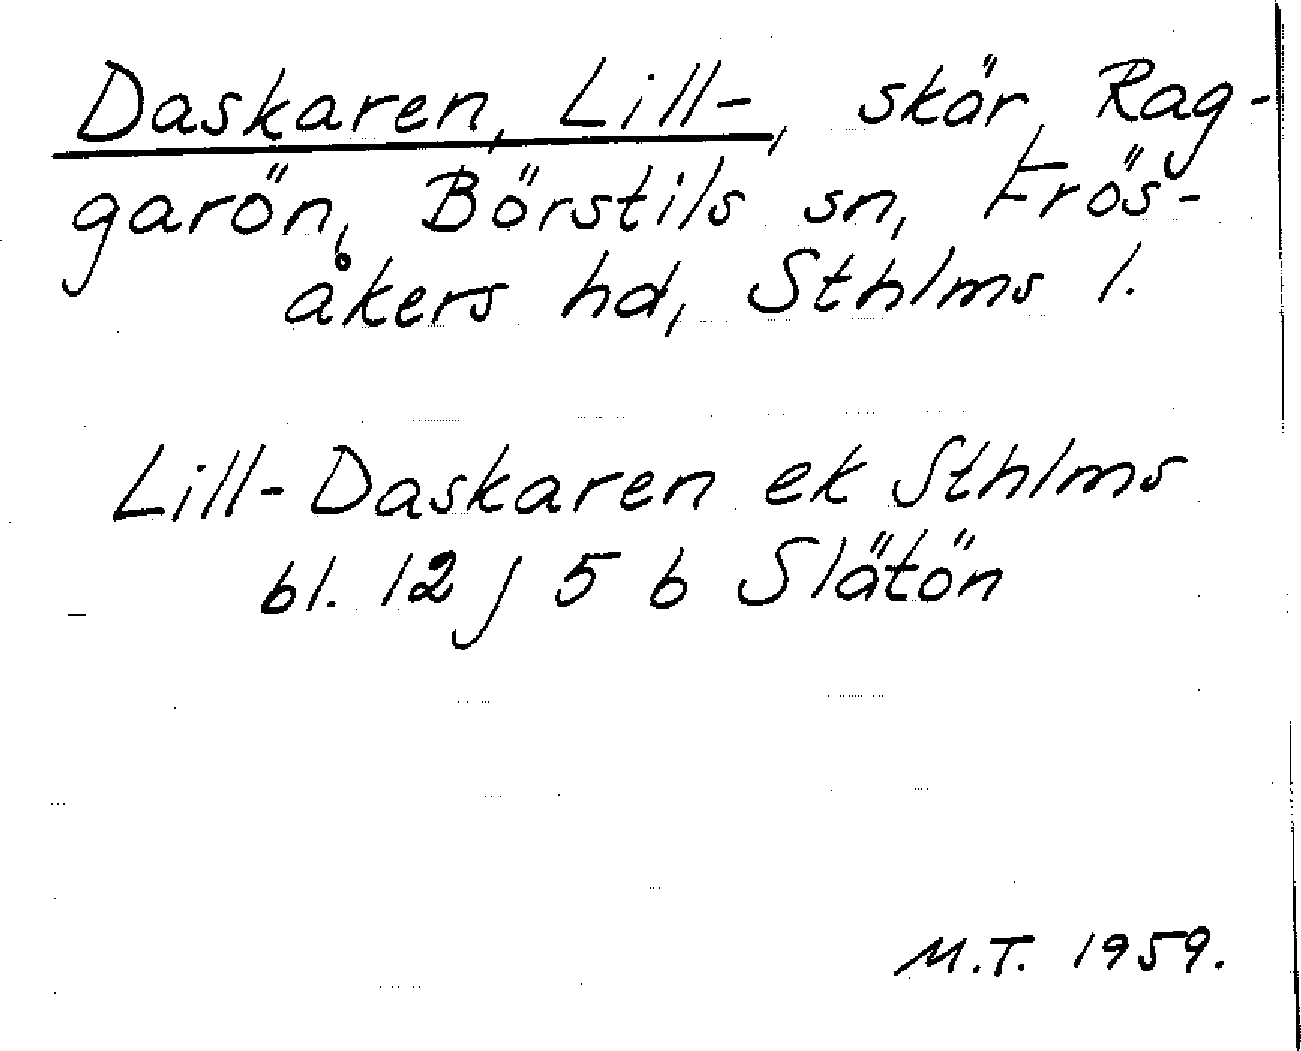 Daskaren, Lill-, skär, Rag-
garön, Börstils sn, Frös-
åkers hd, Sthlms l.
Lill-Daskaren ek Sthlms
bl. 12 j 5 b Slätön
M.T. 1959.